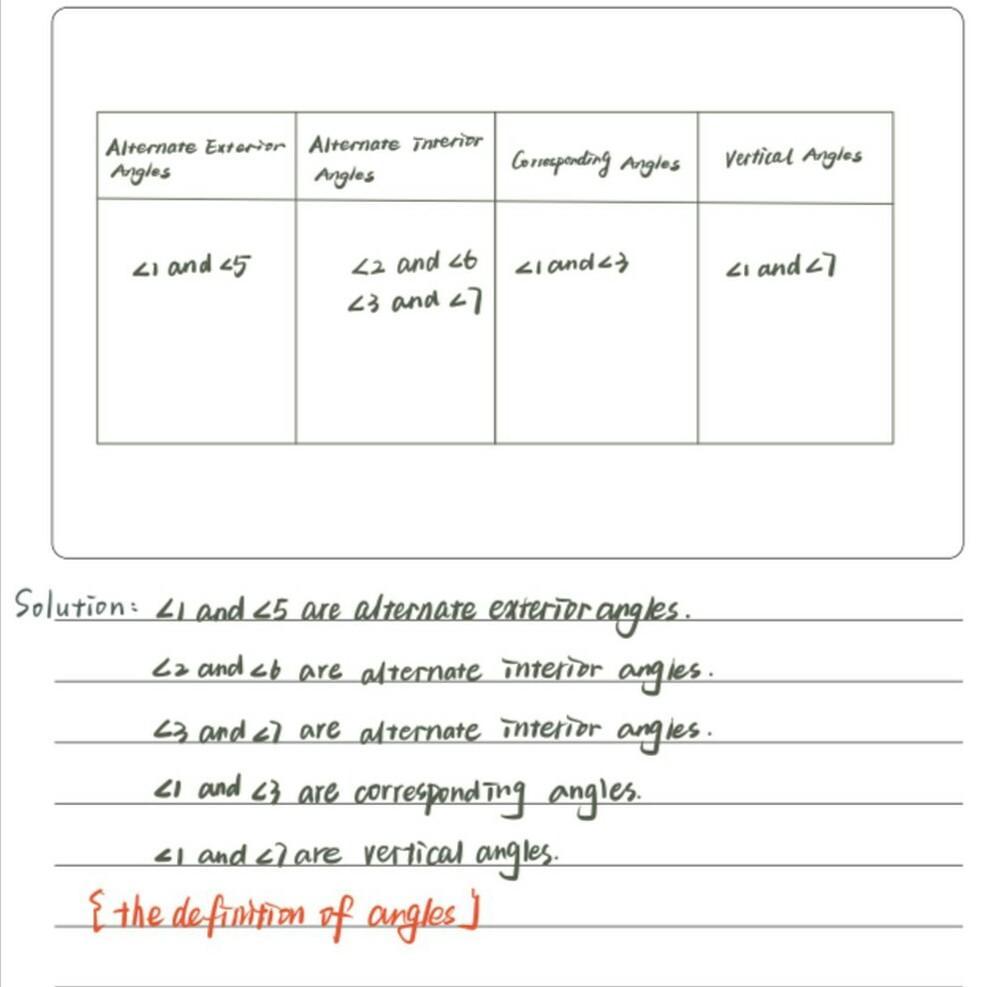 Alternate Exterior
Angles
Alternate Interior
Angles
Corresponding Angles
Vertical Angles
∠1 and ∠5
∠2 and ∠6
∠3 and ∠7
∠1 and ∠3
∠1 and ∠7
Solution: ∠1 and ∠5 are alternate exterior angles.
∠2 and ∠6 are alternate interior angles.
∠3 and ∠7 are alternate interior angles.
∠1 and ∠3 are corresponding angles.
∠1 and ∠7 are vertical angles.
{ the definition of angles ]